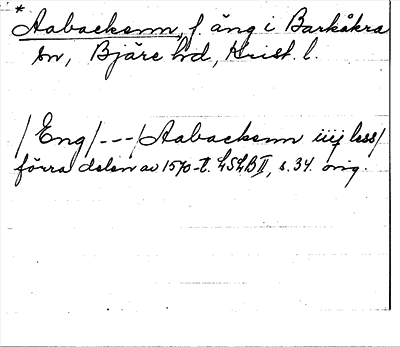 * Aabackenn, f. äng i Barkåkra
sn, Bjäre hd, Krist. l.
/Eng/---/Aabackenn iiij less/
förra delen av 1570-t. LSLB II, s. 34. orig.